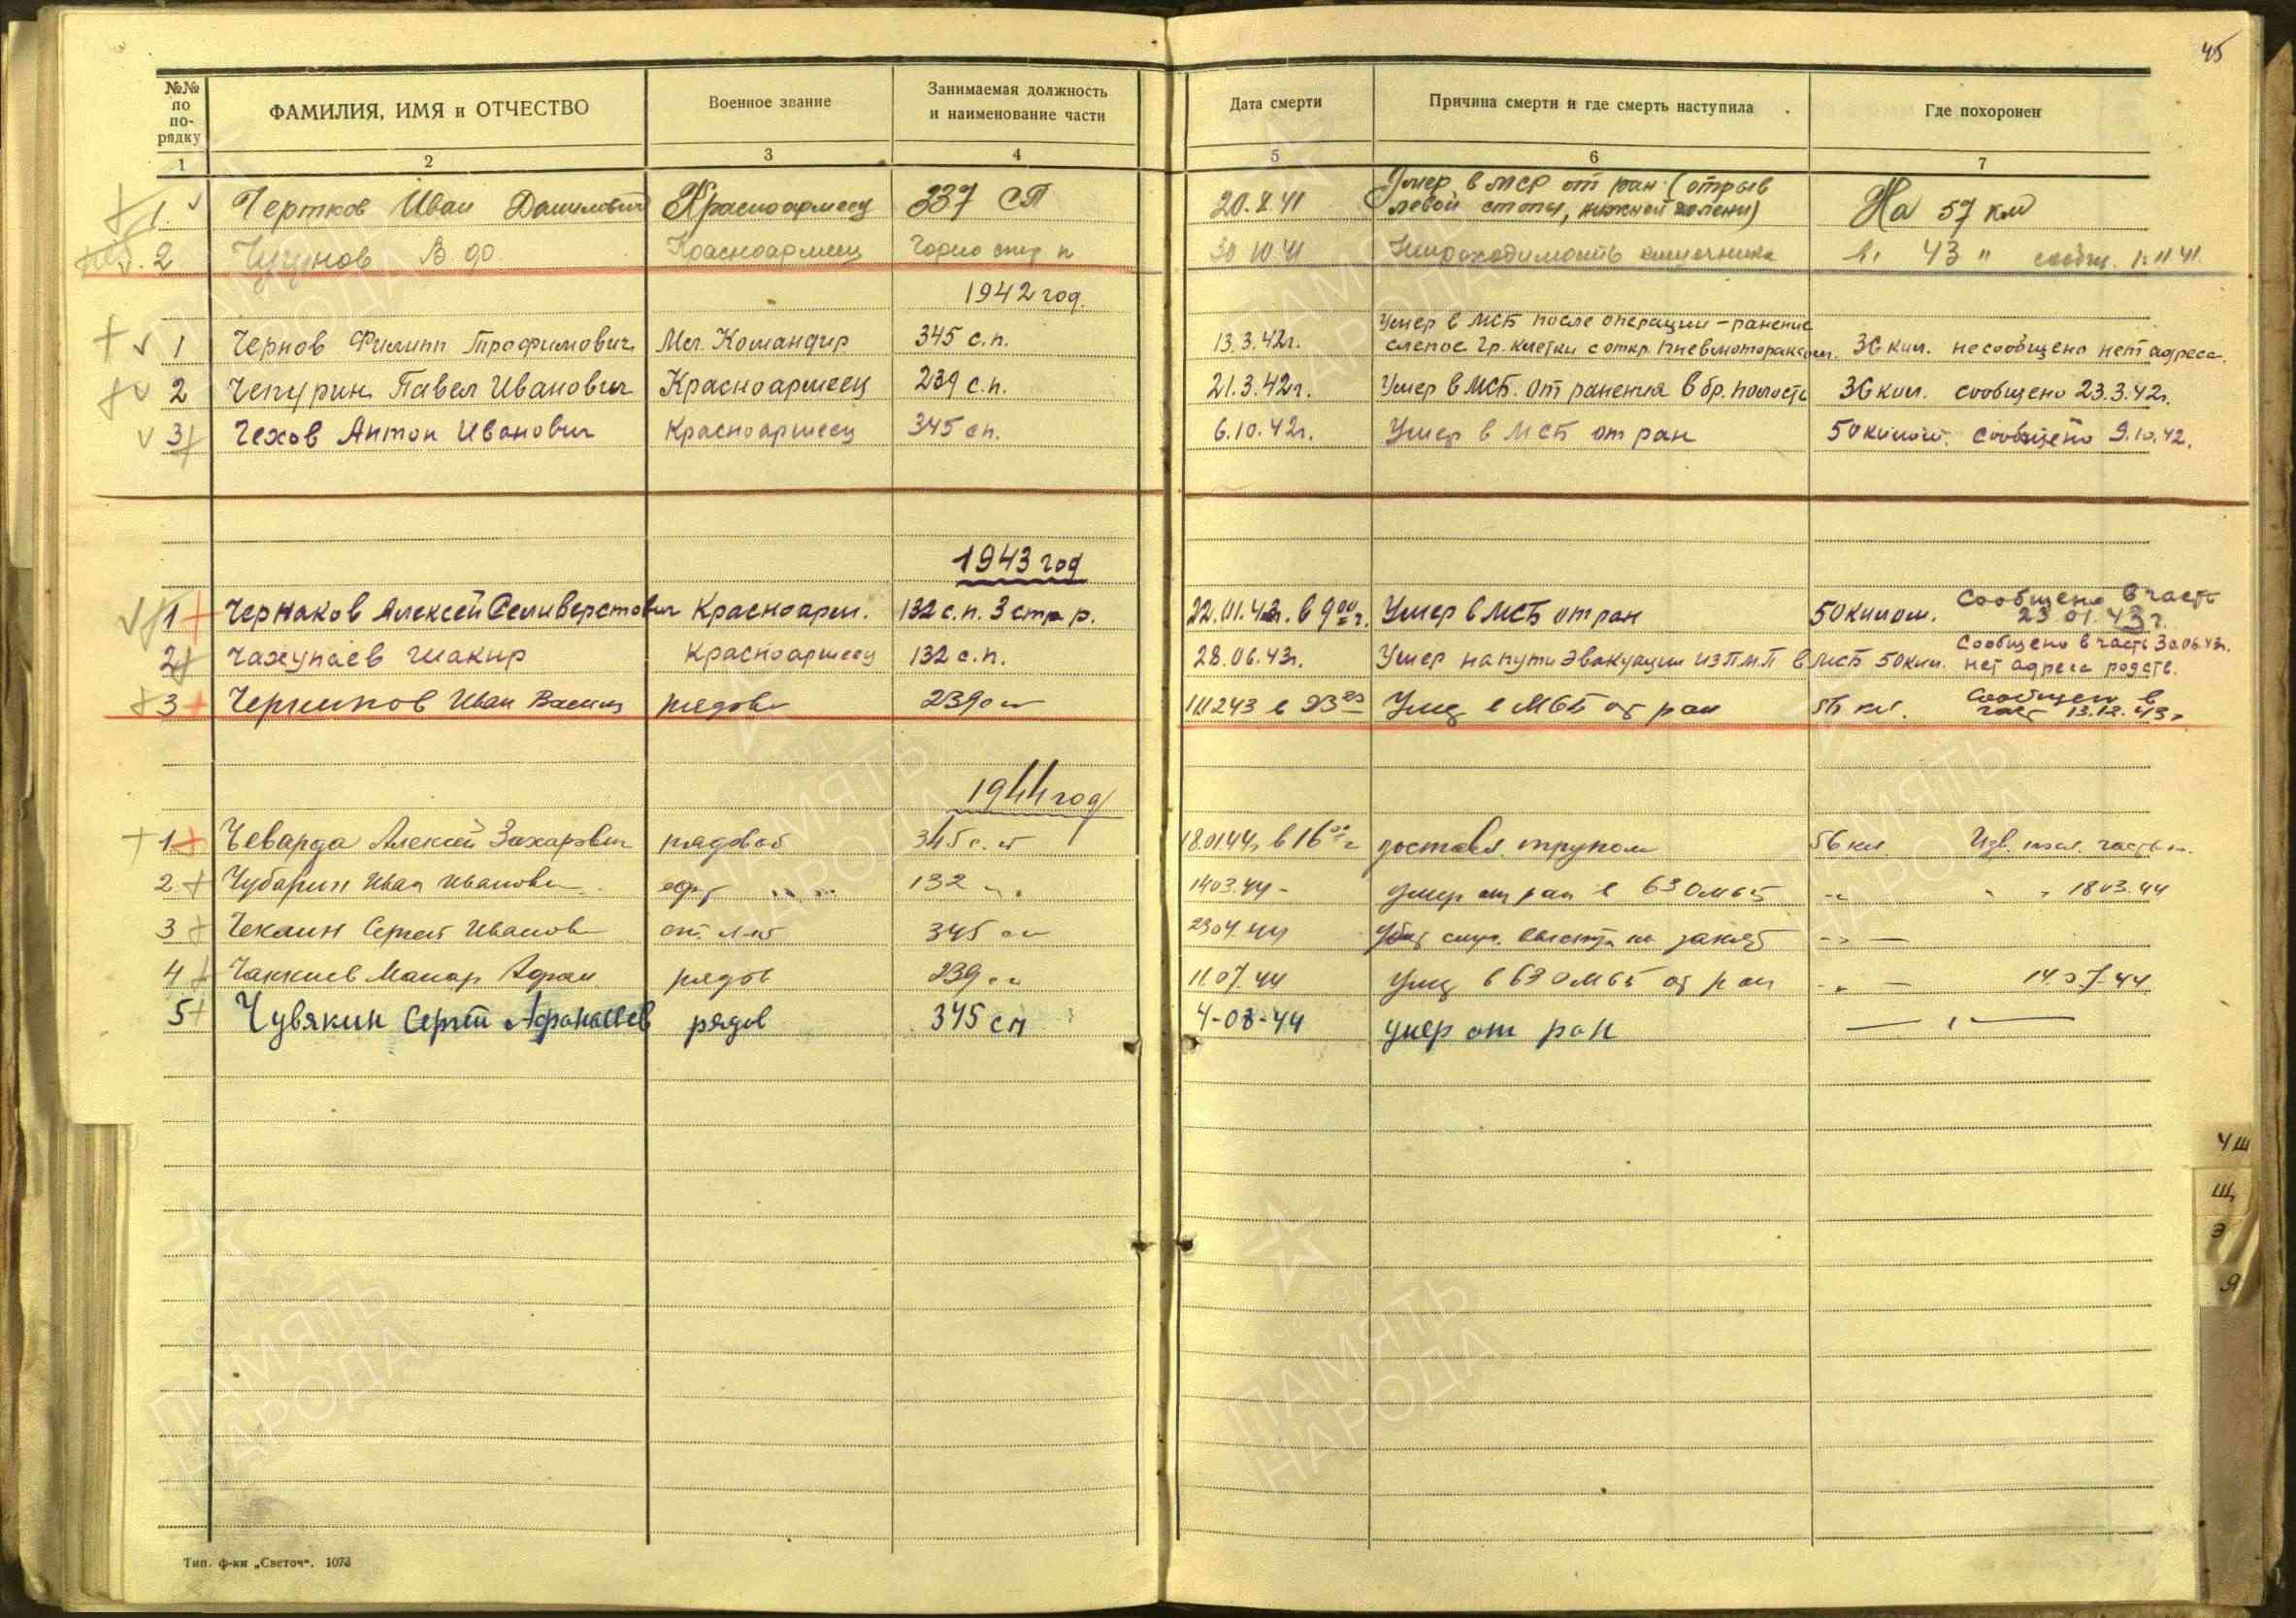 45
№№ по по- рядку ФАМИЛИЯ, ИМЯ и ОТЧЕСТВО Военное звание Занимаемая должность и наименование части Дата смерти Причина смерти и где смерть наступила Где похоронен
1 2 3 4 5 6 7
1. Чертков Иван Данилович Красноармеец 237 СП 20.8.41 Умер в МСР от ран (отрыв левой стопы, нижней голени) На 57 км
2 Красноармеец 30 10 41 Непроходимость кишечника 43 " сообщ. 1.11.41.
1942 год.
1 Чернов Филипп Трофимович Мл. Командир 345 с.п. 13.3.42г. Умер в МСБ после операции – ранение слепое гр. клетки с откр. пневмотораксом. 36 клм. несообщено нет адреса.
2 Чепурин Павел Иванович Красноармеец 239 с.п. 21.3.42г. Умер в МСБ. от ранения в бр. полость 36 клм. сообщено 23.3.42г.
3 Чехов Антон Иванович Красноармеец 345 сп. 6.10.42г. Умер в МСБ от ран 50 килом. сообщено 9.10.42.
1943 год
1 Чернаков Алексей Селиверстович Красноарм. 132 с.п. 3 стр р. 22.01.43г. в 9 00 г. Умер в МСБ от ран 50 килом. Сообщено в часть 23 01.43г.
2 Чахупаев Шакир Красноармеец 132 с.п. 28.06.43г. Умер на пути эвакуации из ПМП в МСБ 50 клм. Сообщено в часть 30.06.43г. нет адреса родств.
3 Иван Васил рядов 239 сп 11.12 43 в 23 Умер в МСБ от ран кл. Сообщен в част 13.12.43г
1944 год
1 Чеварда Алексей Захарович рядовой 345 с.п 18.01.44г в 16 00 доставл. трупом 56 кл. Изв. часть
2 Чубарин Иван Иванович 132 " 14 03.44 – Умер от ран в 63 ОМСБ -"- " " 18 03.44
3 Чеклин Сергей Иванов 345 сп 23 04 44 -"- —
4 рядов 239 сп 11.07.44 Умер в 63 ОМСБ от ран -"- — 14.07.44
5 Чувякин Сергей Афанасиев рядов 345 сп 4-08-44 умер от ран — " —
Ч Ш
Щ
Э
Я
Тип. ф-ки „Светоч“. 1073
ПАМЯТЬ НАРОДА